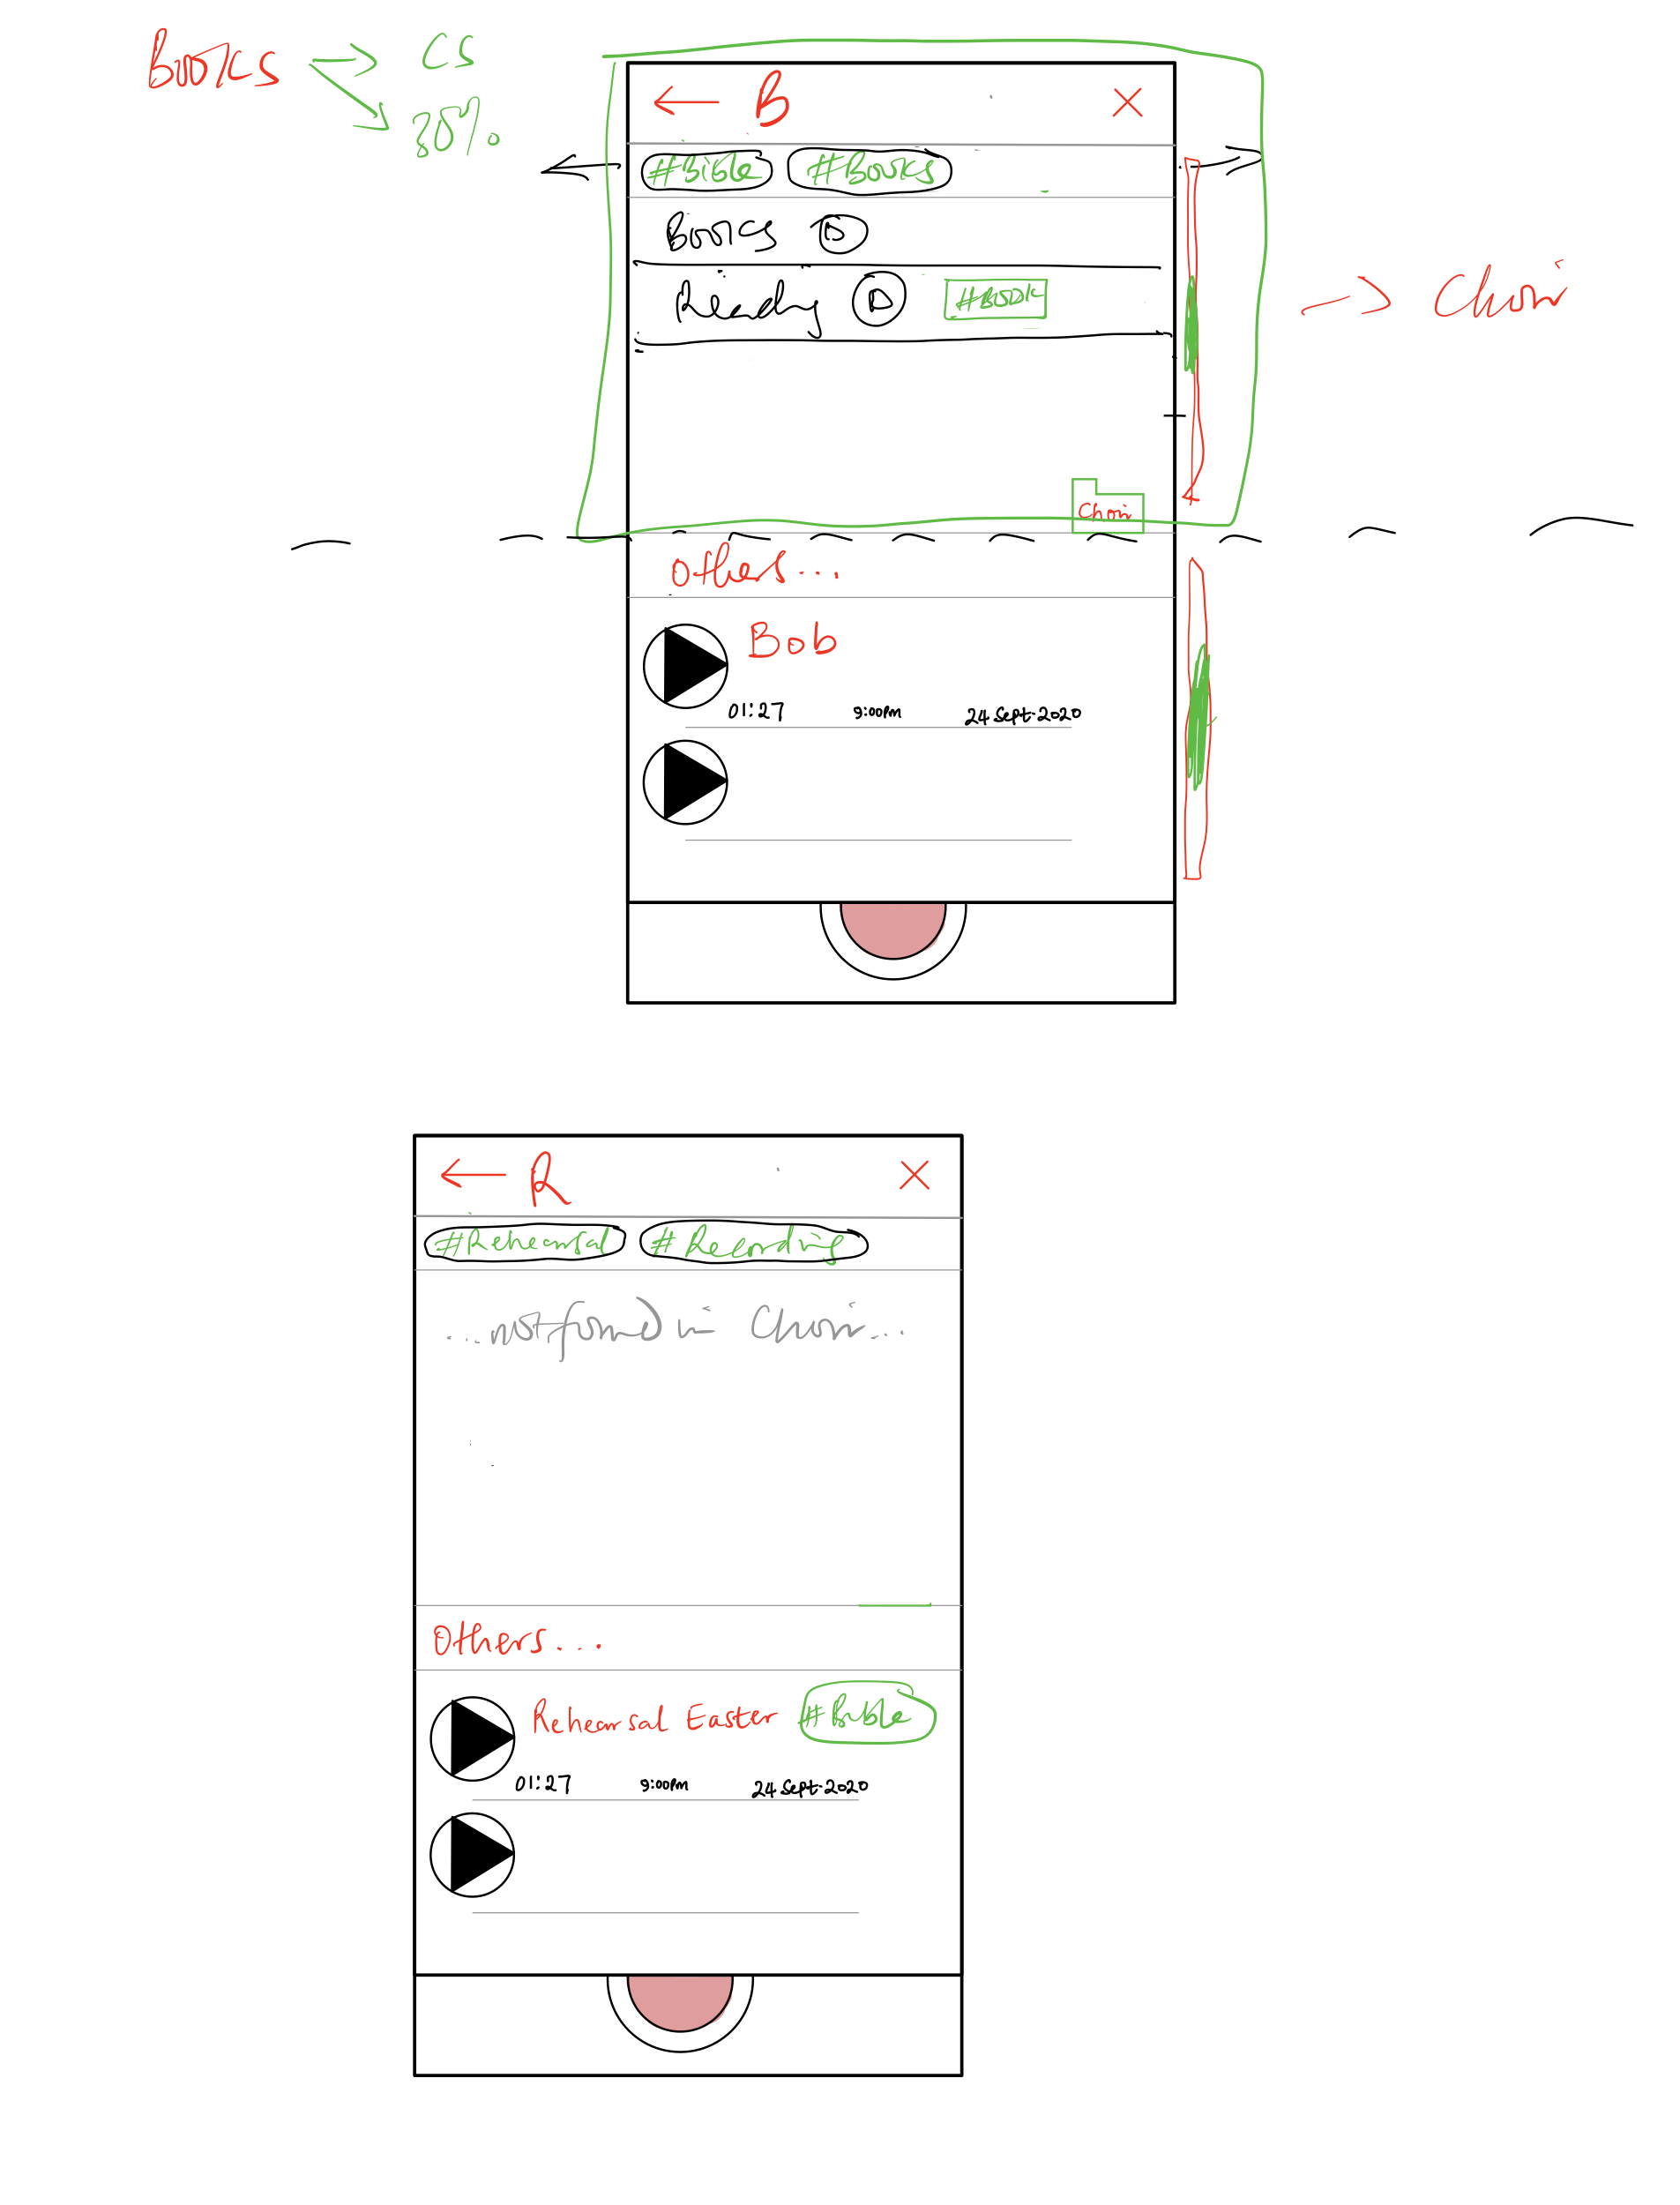 Books → CS
→ 80%
← B ×
#Bible #Books
Books
Reading #Book
→ Choir
Choir
Others...
Bob
01:27 9:00pm 24 Sept-2020
← R ×
#Rehearsal #Recording
...not found in Choir...
Others...
Rehearsal Easter #Bible
01:27 9:00pm 24 Sept-2020